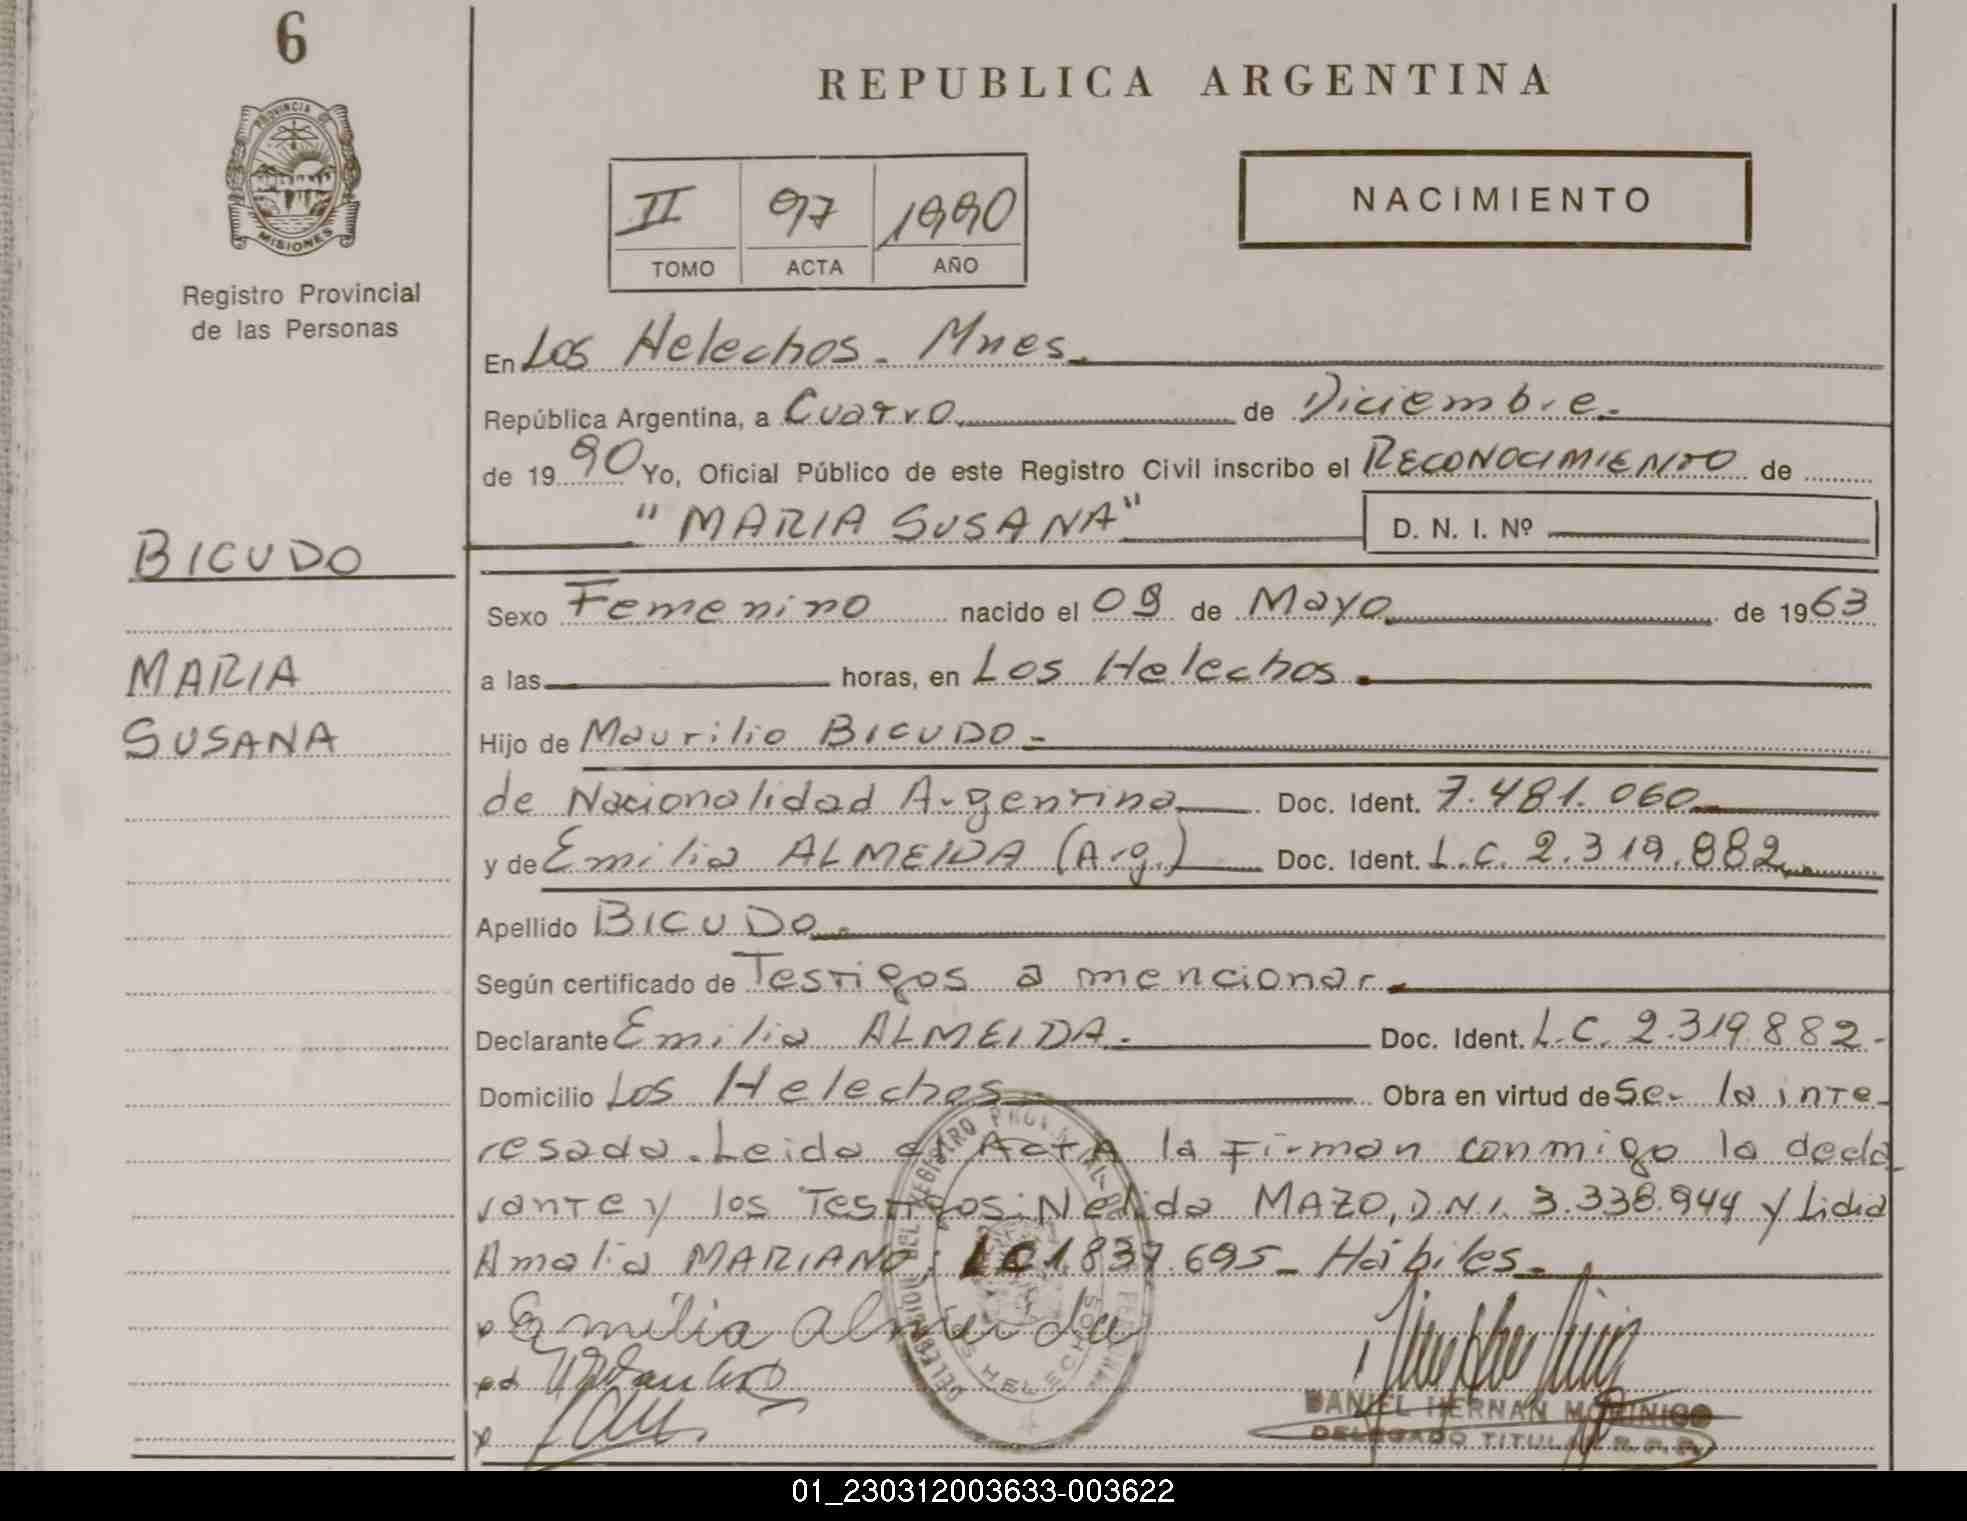 6
REPUBLICA ARGENTINA
PROVINCIA DE
MISIONES
Registro Provincial
de las Personas
II 97 1990
TOMO ACTA AÑO
NACIMIENTO
En Los Helechos - Mnes.
República Argentina, a Cuatro de Diciembre.
de 1990 Yo, Oficial Público de este Registro Civil inscribo el RECONOCIMIENTO de
"MARIA SUSANA" D. N. I. Nº
BICUDO
MARIA
SUSANA
Sexo Femenino nacido el 09 de Mayo de 1963
a las horas, en Los Helechos.
Hijo de Maurilio BICUDO-
de Nacionalidad Argentina Doc. Ident. 7.481.060
y de Emilia ALMEIDA (Arg.) Doc. Ident. L.C. 2.319.882
Apellido BICUDO.
Según certificado de Testigos a mencionar.
Declarante Emilia ALMEIDA.- Doc. Ident. L.C. 2.319.882-
Domicilio Los Helechos Obra en virtud de Ser la inte-
resada. Leida el ActA la Firman conmigo la decla-
rante y los Testigos: Nelida MAZO, D.N.I. 3.338.944 y Lidia
Amalia MARIANO; LC 1.837.695- Hábiles.
Emilia Almeida
DELEGACION DEL REGISTRO PROVINCIAL
LOS HELECHOS
DANIEL HERNAN MORINIGO
DELEGADO TITULAR R.P.P.
01_230312003633-003622